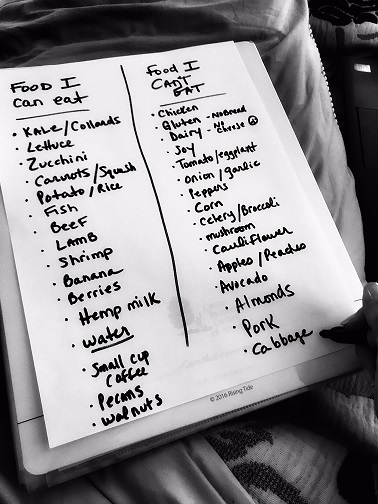 FOOD I
Can eat
• KALE/Collards
• Lettuce
• Zucchini
• Carrots/Squash
• Potato/Rice
• Fish
• BeeF
• LAMB
• Shrimp
• Banana
• Berries
• Hemp milk
• water
• Small cup
coffee
• Pecans
• walnuts
Food I
CAN'T
EAT
• Chicken
• Gluten - No Bread
• Dairy - No Cheese ☹
• Soy
• Tomato/eggplant
• onion/garlic
• Peppers
• Corn
• Celery/Broccoli
• mushroom
• Cauliflower
• Apples/Peaches
• Avocado
• Almonds
• Pork
• Cabbage
© 2016 Rising Tide